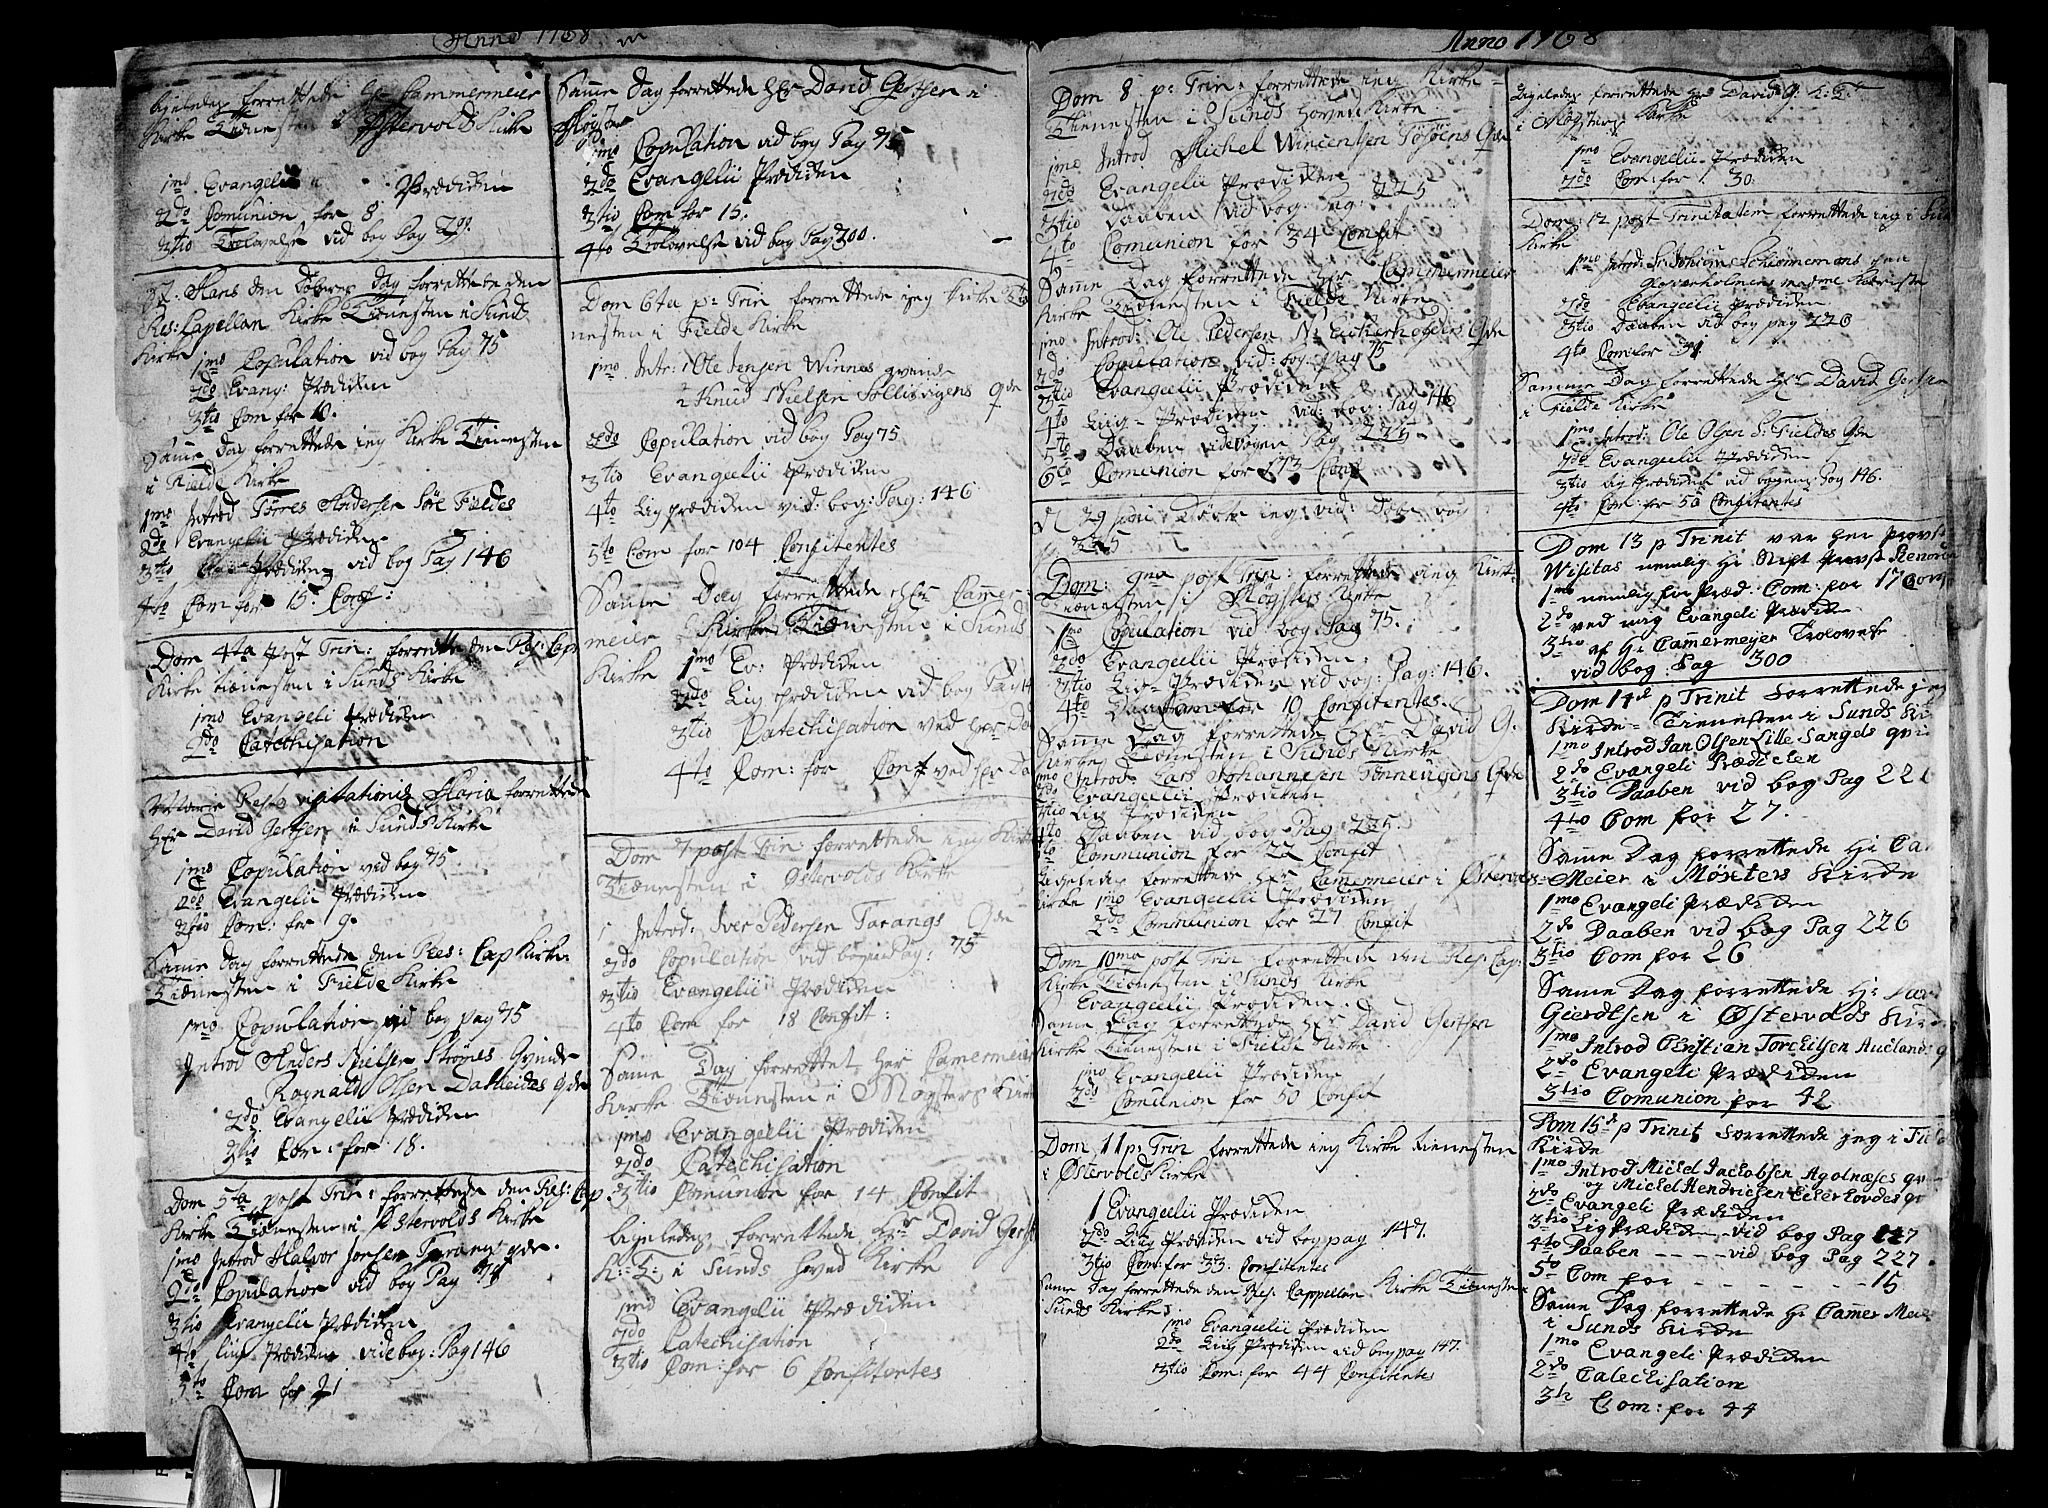 Anno 1768
ligeledes forrettede Hr Cammermeier
Kirke Tienesten i Østervolds Kirke
1mo Evangelii Prædiken
2do Comunion for 8
3tio Trolovelse vid bog Pag 299.
St. Hans den Døberes Dag forrettede den
Res: Capellan Kirke Tienesten i Sund
Kirke
1mo Copulation vid bog Pag 75
2do Evang: Prædiken
3tio Com for 10.
Same Dag forrettede ieg Kirke Tienesten
i Fielde Kirke
1mo Introd Tørres Andersen Søre Fieldes
2do Evangelii Prædiken
3tio Prædiken vid bog Pag 146
4to Com for 15. Conf:
Dom 4ta post Trin: forrette den Res: Cap
Kirke tienesten i Sunds Kirke
1mo Evangeli Prædiken
2do Catechisation
Festo Visitationis Maria forrettede
Hr David Gertsen i Sunds Kirke
1mo Copulation vid bog 75.
2do Evangelii Prædiken
3tio Com: for 9.
Same Dag forrettede den Res: Cap Kirke
Tienesten i Fielde Kirke
1mo Copulation vid bog pag 75
Introd Anders Nielsen Strønes Qvinde
Ragnald Olsen Dalleides Qde
2do Evangelii Prædiken
3tio Com: for 18.
Dom 5ta post Trin: forrettede den Res: Cap.
Kirke Tienesten i Østervolds Kirke
1mo Introd Halvor Jonsen Tarang qde.
2do Copulation vid bog Pag 75
3tio Evangelii Prædiken
4to Liig Prædiken vide bog: Pag 146
5to Com for 21
Same Dag forrettede Hr David Gertsen i
Møgster
1mo Copulation vid bog Pag 75
2do Evangelii Prædiken
3tio Com for 15.
4to Trolovelse vid bog Pag 300.
Dom 6ta p: Trin forrettede ieg Kirke Tie
nesten i Fielde Kirke
1mo Intr: 1 Ole Jensen Winnes qvinde
2 Knud Nielsen Qde
2do Copulation vid bog Pag 75
3tio Evangelii Prædiken
4to Lig prædiken vid: bog: Pag: 146
5to Com for 104 Confitentes
Same Dag forrettede Hr Camer
meier Kirke Tienesten i Sunds
Kirke 1mo Ev: Prædiken
2do Lig Prædiken vid bog Pag 14
3tio Catechisation ved Hr Da
4to Com: for Conf ved Hr Da
Dom 7 post Trin: forrettede ieg Kirke
Tienesten i Østervolds Kirke
1 Introd: Iver Pedersen Tarangs Qde
2do Copulation vid bog Pag: 75
3tio Evangelii Prædiken
4to Com for 18 Confit:
Same Dag forrettet Her Camermeier
Kirke Tienesten i Møgsters Kirke
1mo Evangelii Prædiken
2do Catechisation
3tio Comunion for 14 Confit
ligeledes forrettede Hr David Gerts
K: T: i Sunds Hoved Kirke
1mo Evangelii Prædiken
2do Catechisation
3tio Com: for 6 Confitentes
Anno 1768
Dom 8 p: Trin: forrettede ieg Kirke
Tienesten i Sunds Hoved Kirke
1mo Introd Michel Wincentsen Qde
2do Evangelii Prædiken
3tio Daaben vid bog Pag: 225
4to Comunion for 34 Confit
Same Dag forrettede Hr Cammermeier
Kirke Tienesten i Fielde Kirke
1mo Introd: Ole Pedersen N: Eickerhofders Qde
2do Copulation vid: bog: Pag 75
3tio Evangelii Prædiken
4to Liig-Prædiken vid: bog: Pag 146
5to Daaben vide bogen Pag 225
6to Comunion for 73 Conf
D 29 Juni: Døbte ieg vid: Døbe bog
225
Dom: 9na post Trin: forrettede ieg Kirk
Tienesten i Møgsters Kirke
1mo Copulation vid bog Pag 75.
2do Evangelii Prædiken.
3tio Lig-Prædiken vid bog: Pag: 146.
4to Com for 10 Confitentes.
Same Dag forrettede Hr David G.
Kirke Tienesten i Sunds Kirke
1mo Introd: Lars Johannesen Tønnengens Qde
2do Evangelii Prædiken
3tio Lig Prædiken
4to Daaben vid bog Pag 225.
5to Communion for 22 Confit
Ligeledes forrettede Hr Camermeier i Østervolds
Kirke 1mo Evangelii Prædiken
2do Communion for 27 Confit
Dom 10ma post Trin forrettede den Res: Cap:
Kirke Tienesten i Sunds Kirke
Evangelii Prædiken.
Same Dag forrettede Hr David Gertsen
Kirke Tienesten i Fielde Kirke
1mo Evangelii Prædiken
2do Comunion for 50 Confit
Dom 11 p: Trin forrettede ieg Kirke tienesten
i Østervolds Kirke
1 Evangelii Prædiken
2do Liig Prædiken vid bog pag 147.
3tio Com: for 33. Confitentes
Same Dag forrettede den Res. Cappellan Kirke Tienesten
Sunds Kirke
1mo Evangelii Prædiken
2do Liig Prædiken vid bog pag 147.
3tio Com: for 44 Confitentes
Ligeledes forrettede Hr David G: K: T
i Møgsters Kirke
1mo Evangelii Prædiken
2do Com: for 30.
Dom: 12 post Trinitatem forrettede ieg i Sun
Kirke
1mo Introd: Sr Johan Schiønemans
madme
2do Evangelii Prædiken
3tio Daaben vid bog pag 226
4to Com for 31.
Samme Dag forrettede Hr David Gertsen
i Fielde Kirke
1mo Introd: Ole Olsen S: Fieldes Qde
2do Evangelii Prædiken
3tio Lig Prædiken vid bogen: Pag 146.
4to Com: for 50 Confitentes
Dom 13 p Trinit var her Provst
Wisitas nemlig Hr Stift Provst
1mo nemlig hr Præd: Com: for 17 Conf
2do ved mig Evangeli Prædiken
3tio af Hr Cammermeyer Trolovelse
vid bog Pag 300
Dom 14d p Trinit forrettede jeg
Kirke-Tienesten i Sunds Ki
1mo Introd Jan Olsen Lille Sangels qvi
2do Evangeli Prædicken
3tio Daaben vid bog Pag 226
4to Com for 27.
Same Dag forrettede Hr Ca
Meier i Møxters Kirke
1mo Evangeli Prædiken
2do Daaben vid bog Pag 226
3tio Com for 26
Same Dag forrettede Hr Davi
Gierdtsen i Østervolds Kirke
1mo Introd Christian Torckilsen Auelands q
2do Evangeli Prædiken
3tio Comunion for 42
Dom 15d p Trinit forrettede jeg i Fiel
Kirke
1mo Introd Mickel Jackobsen Agolneses qv
og Mickel Hendricksen Eickerhovdes q
2do Evangeli Prædiken
3tio Lig Prædiken vid bog Pag 147
4to Daaben - - - - vid bog Pag 227
5to Com for - - - - - - 15
Same Dag forrettede Hr Camer Meier
i Sunds Kirke
1mo Evangeli Prædiken
2do Catechisation
3ti Com: for 44